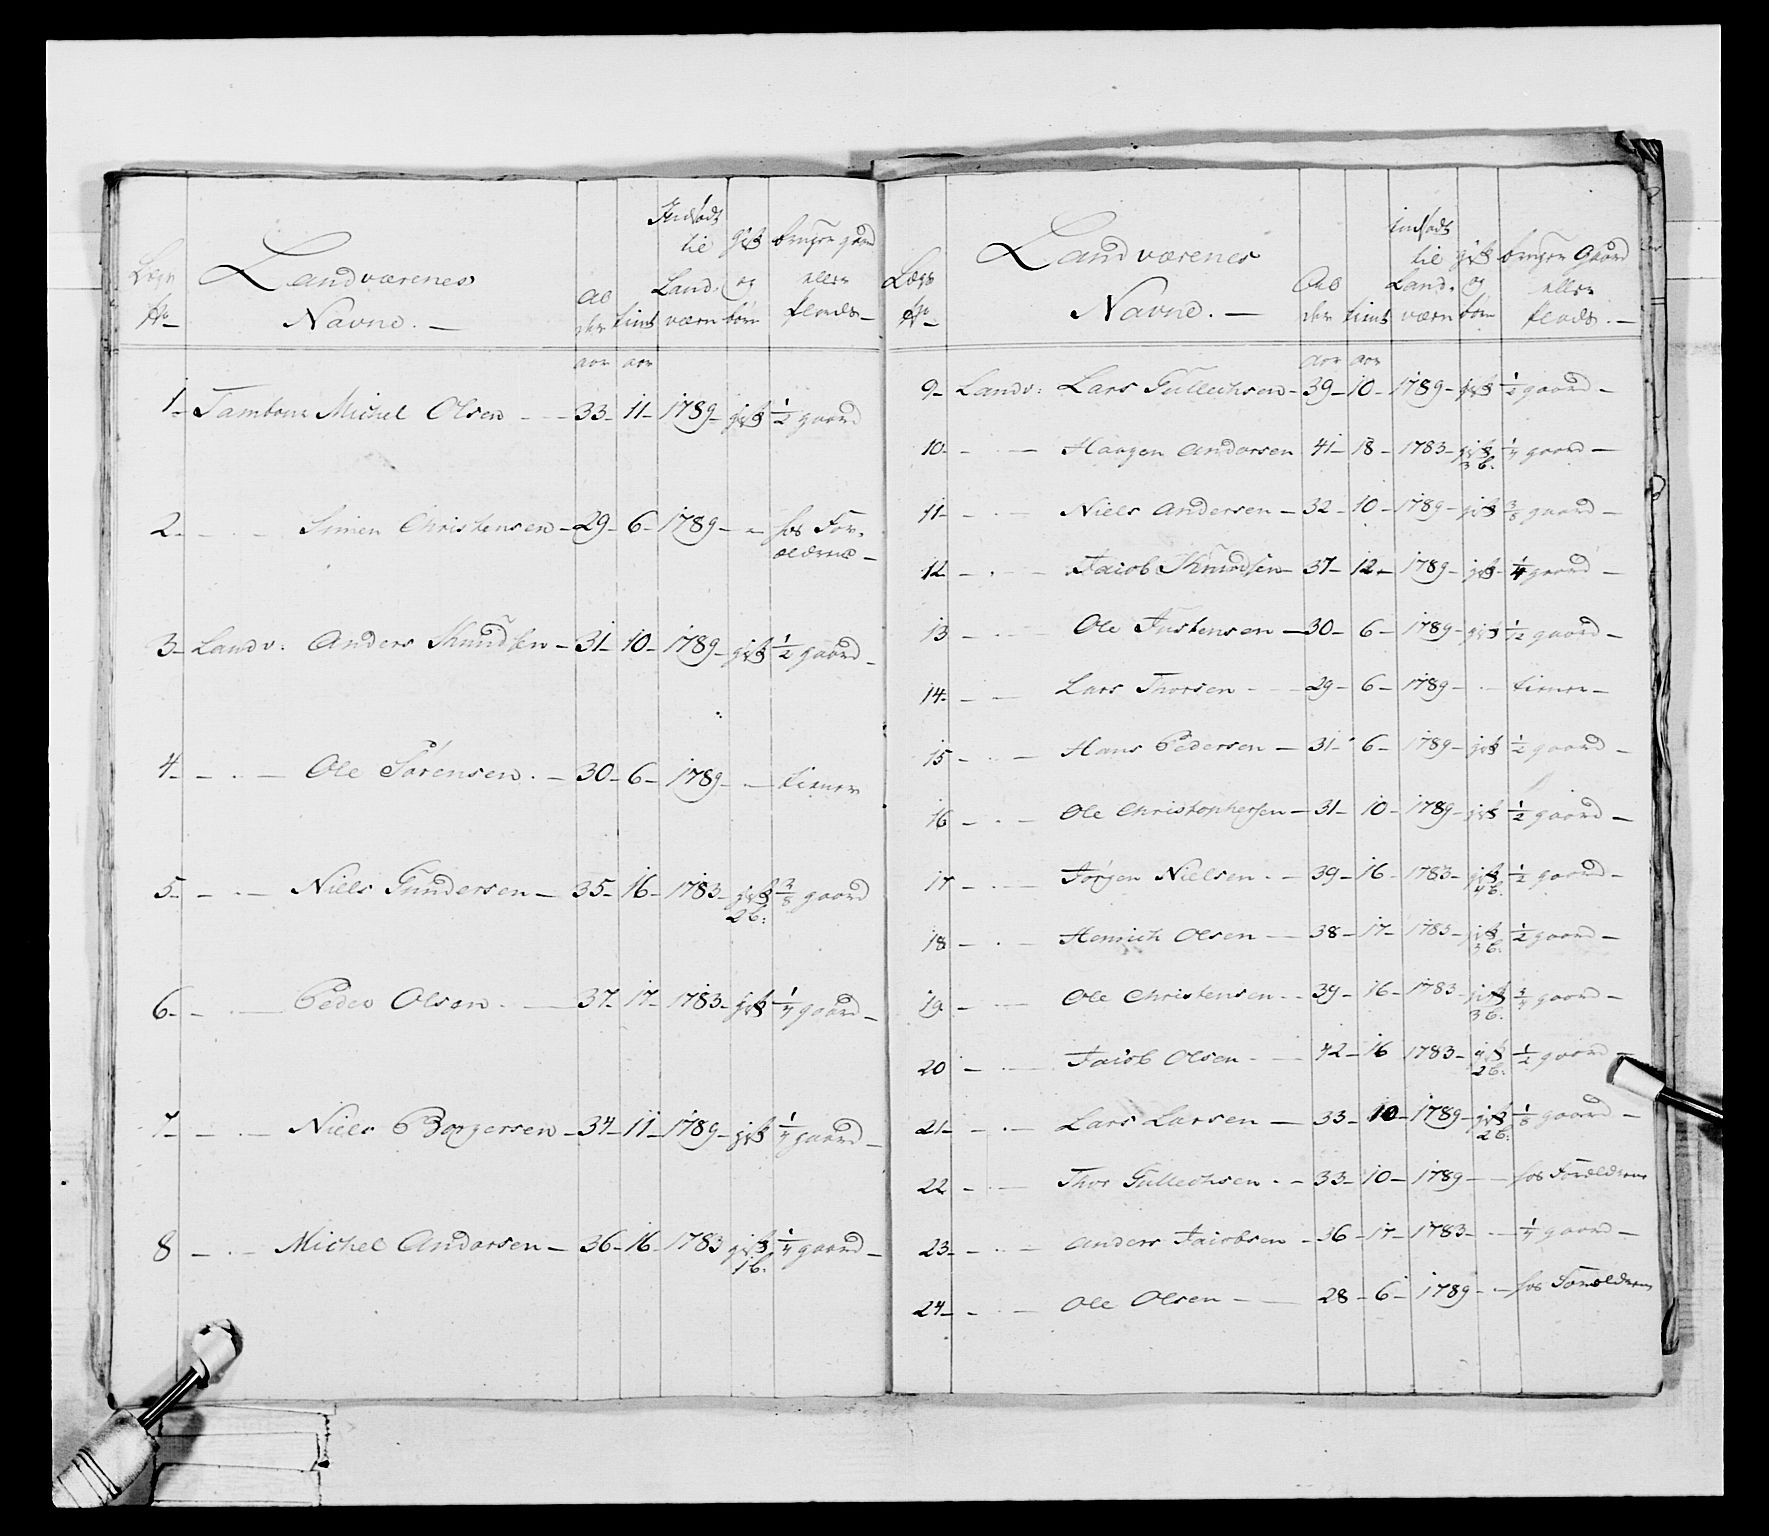 Lægs No Landværenes Navne. Al der aar tient aar Indsadt til Land. værn gift og børn bruger gaard eller plads
1 Tambour Michel Olsen 33 11 1789 gift 1/2 gaard
2 Simen Christensen 29 6 1789 hos For-
ældrene
3 Landv: Anders Knudsen 31 10 1789 gift 1/2 gaard
4 Ole Sørensen 30 6 1789 tiener
5 Niels Gundersen 35 16 1783 gift 3/8 gaard
2 b:
6 Peder Olsen 37 17 1783 gift 1/4 gaard
7 Niels Borgersen 34 11 1789 gift 1/4 gaard
8 Michel Andersen 36 16 1783 gift 1/4 gaard
1 b.
Lægs No Landværenes Navne. Al der aar tient aar indsadt til Land. værn gift og børn bruger Gaard eller plads.
9 Landv: Lars Gullechsen 39 10 1789 gift 1/2 gaard
10 Haagen Andersen 41 18 1783 gift 1/4 gaard
3 b.
11 Niels Andersen 32 10 1789 gift 3/8 gaard
12 Jacob Knudsen 37 12 1789 gift 1/4 gaard
13 Ole Justensen 30 6 1789 gift 1/12 gaard
14 Lars Thorsen 29 6 1789 tiener
15 Hans Pedersen 31 6 1789 gift 1/2 gaard
16 Ole Christophersen 31 10 1789 gift 1/2 gaard
17 Jørgen Nielsen 39 16 1783 gift 1/2 gaard
4 b.
18 Henrich Olsen 38 17 1783 gift 1/2 gaard
3 b.
19 Ole Christensen 39 16 1783 gift gaard
3 b.
20 Jacob Olsen 42 16 1783 gift 1/2 gaard
2 b:
21 Lars Larsen 33 10 1789 gift 1/8 gaard
2 b:
22 Thor Gullechsen 33 10 1789 hos Forældrene
23 Anders Jacobsen 36 17 1783 1/4 gaard
24 Ole Olsen 28 6 1789 hos Forældrene